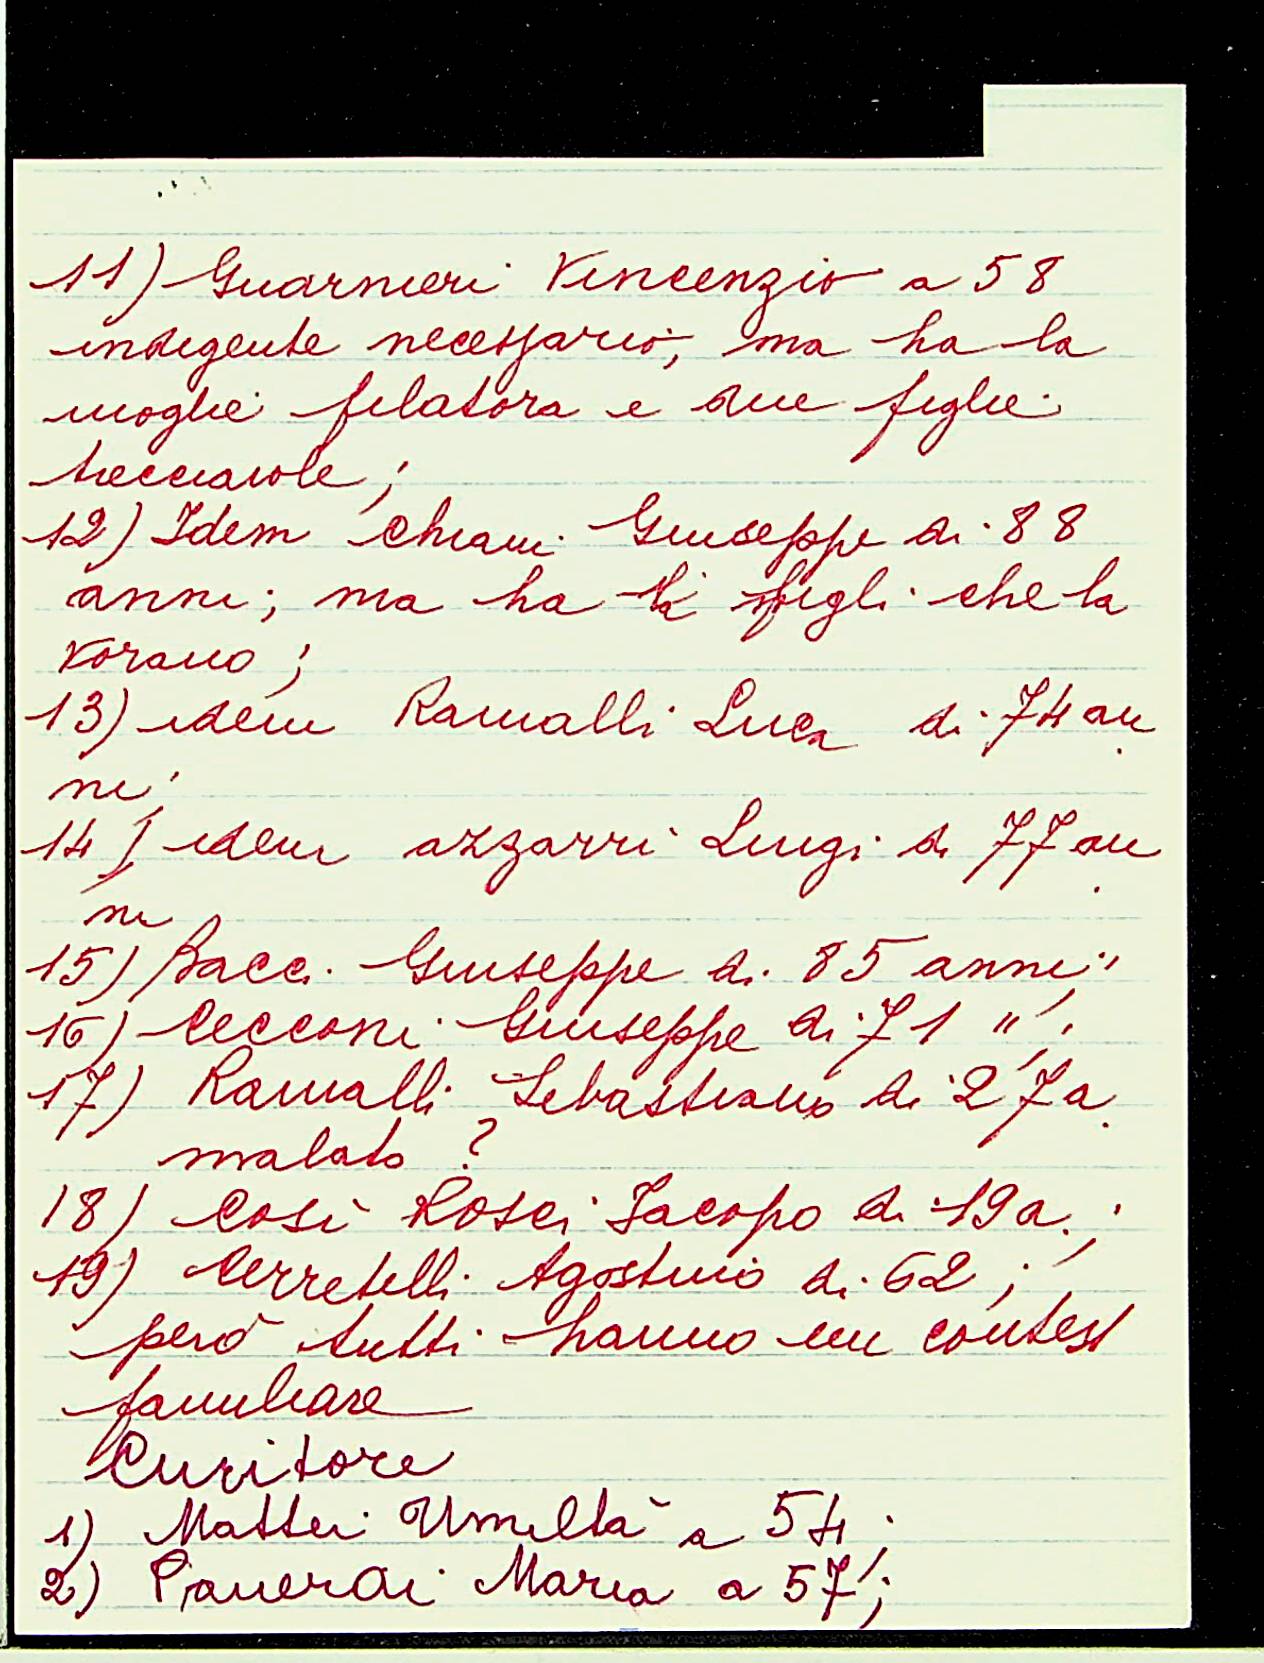 11) Guarnieri Vincenzio a 58
indigente necessario, ma ha la
moglie filatora e due figlie
trecciaiole;
12) Idem Chiani Giuseppe di 88
anni; ma ha figli che la
vorano;
13) idem Ramalli Luca di 74 an
ni;
14) idem Azzarri Luigi di 77 an
ni
15) Bacci Giuseppe di 85 anni;
16) Cecconi Giuseppe di 71 " ;
17) Ramalli Sebastiano di 27 a.
malato ?
18) Così Rosci Jacopo di 19 a. ;
19) Cerretelli Agostino di 62 ;
però tutti hanno un contest
familiare
Cucitore
1) Mattei Umiltà a 54 ;
2) Panerai Maria a 57 ;